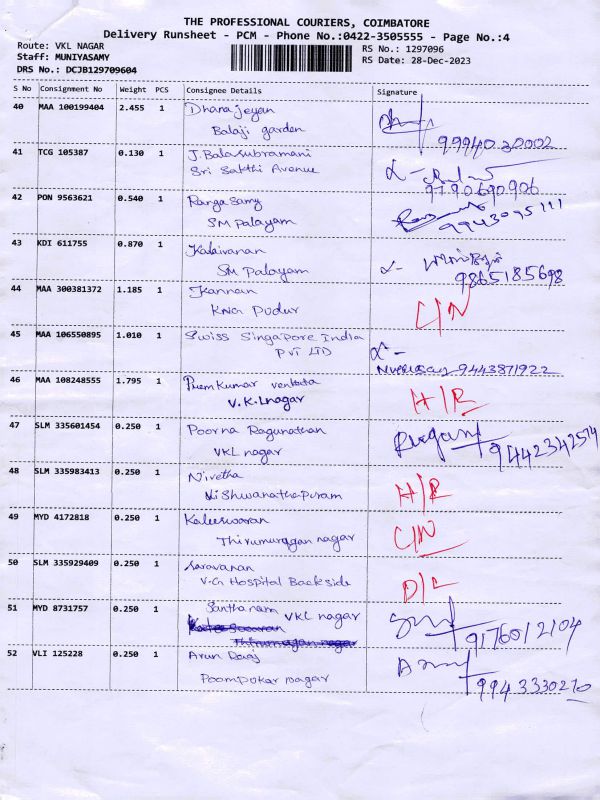 THE PROFESSIONAL COURIERS, COIMBATORE
Delivery Runsheet - PCM - Phone No.:0422-3505555 - Page No.:4
Route: VKL NAGAR
RS No.: 1297096
Staff: MUNIYASAMY
RS Date: 28-Dec-2023
DRS No.: DCJB129709604
S No Consignment No Weight PCS Consignee Details Signature
40 MAA 100199404 2.455 1 Dhanajeyan
Balaji garden
9994030002
41 TCG 105387 0.130 1 J.Balasubramani
Sri Sakthi Avenue
9790690906
42 PON 9563621 0.540 1 Rangasamy
SM Palayam
9943095111
43 KDI 611755 0.870 1 Kalaivanan
SM Palayam
9865185698
44 MAA 300381372 1.185 1 Kannan
KNG Pudur
C/N
45 MAA 106550895 1.010 1 Swiss Singapore India
Pvt LTD
9443871922
46 MAA 108248555 1.795 1 Premkumar venkata
V.K.L nagar
H/R
47 SLM 335601454 0.250 1 Poorna Ragunathan
VKL nagar
9442342514
48 SLM 335983413 0.250 1 Nivetha
Vishwanathapuram
H/R
49 MYD 4172818 0.250 1 Kaleeswaran
Thirumurugan nagar
C/N
50 SLM 335929409 0.250 1 Saravanan
V.G Hospital Backside
D/L
51 MYD 8731757 0.250 1 Santhanam VKL nagar
9176012104
52 VLI 125228 0.250 1 Arun Daaj
Poompukar nagar
9943330210